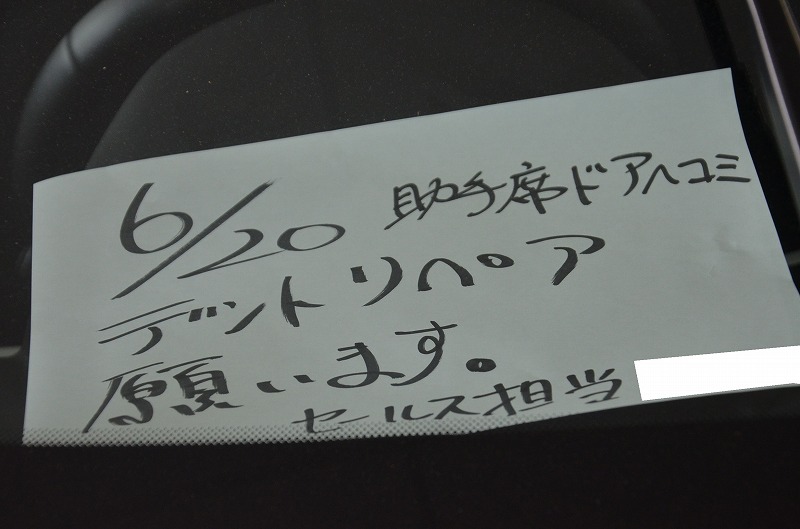 6/20 助手席ドアヘコミ
デントリペア
願います。
セールス担当